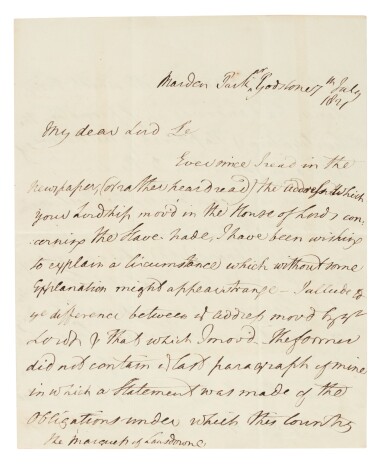 Marden Park nr Godstone 7th July
1821
My dear Lord
Ever since I read in the
Newspaper, (or rather heard read) the address which
your Lordship mov'd in the House of Lords con-
cerning the Slave Trade, I have been wishing
to explain a Circumstance which without some
Explanation might appear strange - I allude to
ye difference between ye address mov'd by yr
Lordp & that which I mov'd. The former
did not contain ye last paragraph of mine
in which a Statement was made of the
Obligations under which this Country
The Marquess of Lansdowne